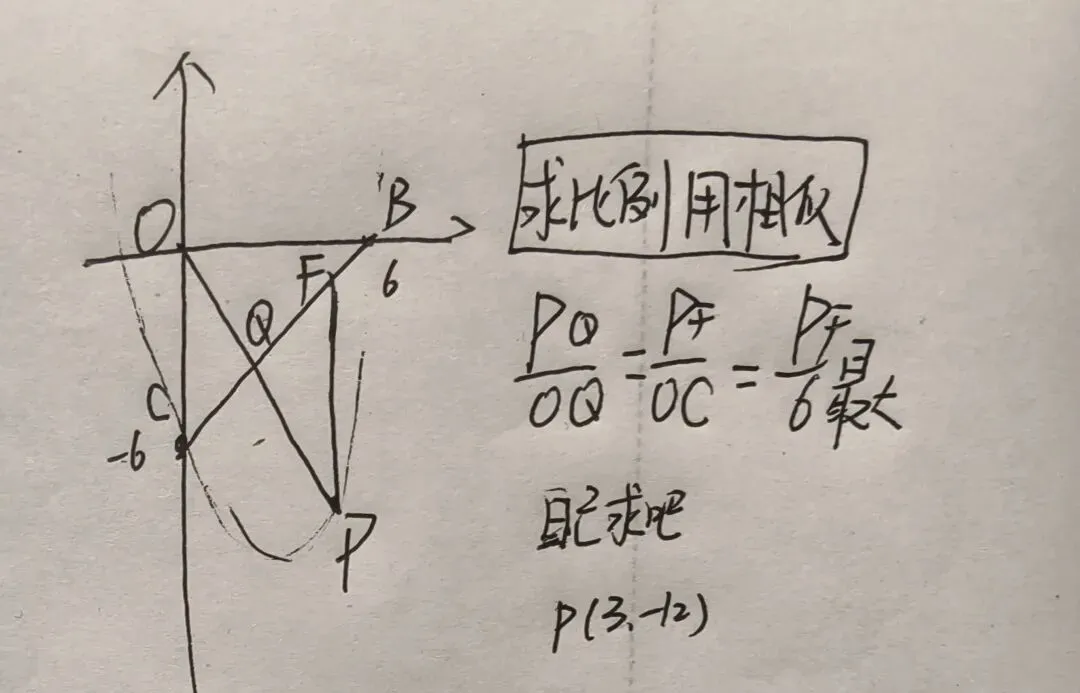 求比例用相似
O
B
F
6
Q
C
-6
P
PQ/OQ = PF/OC = PF/6 最大
自己求吧
P(3,-12)